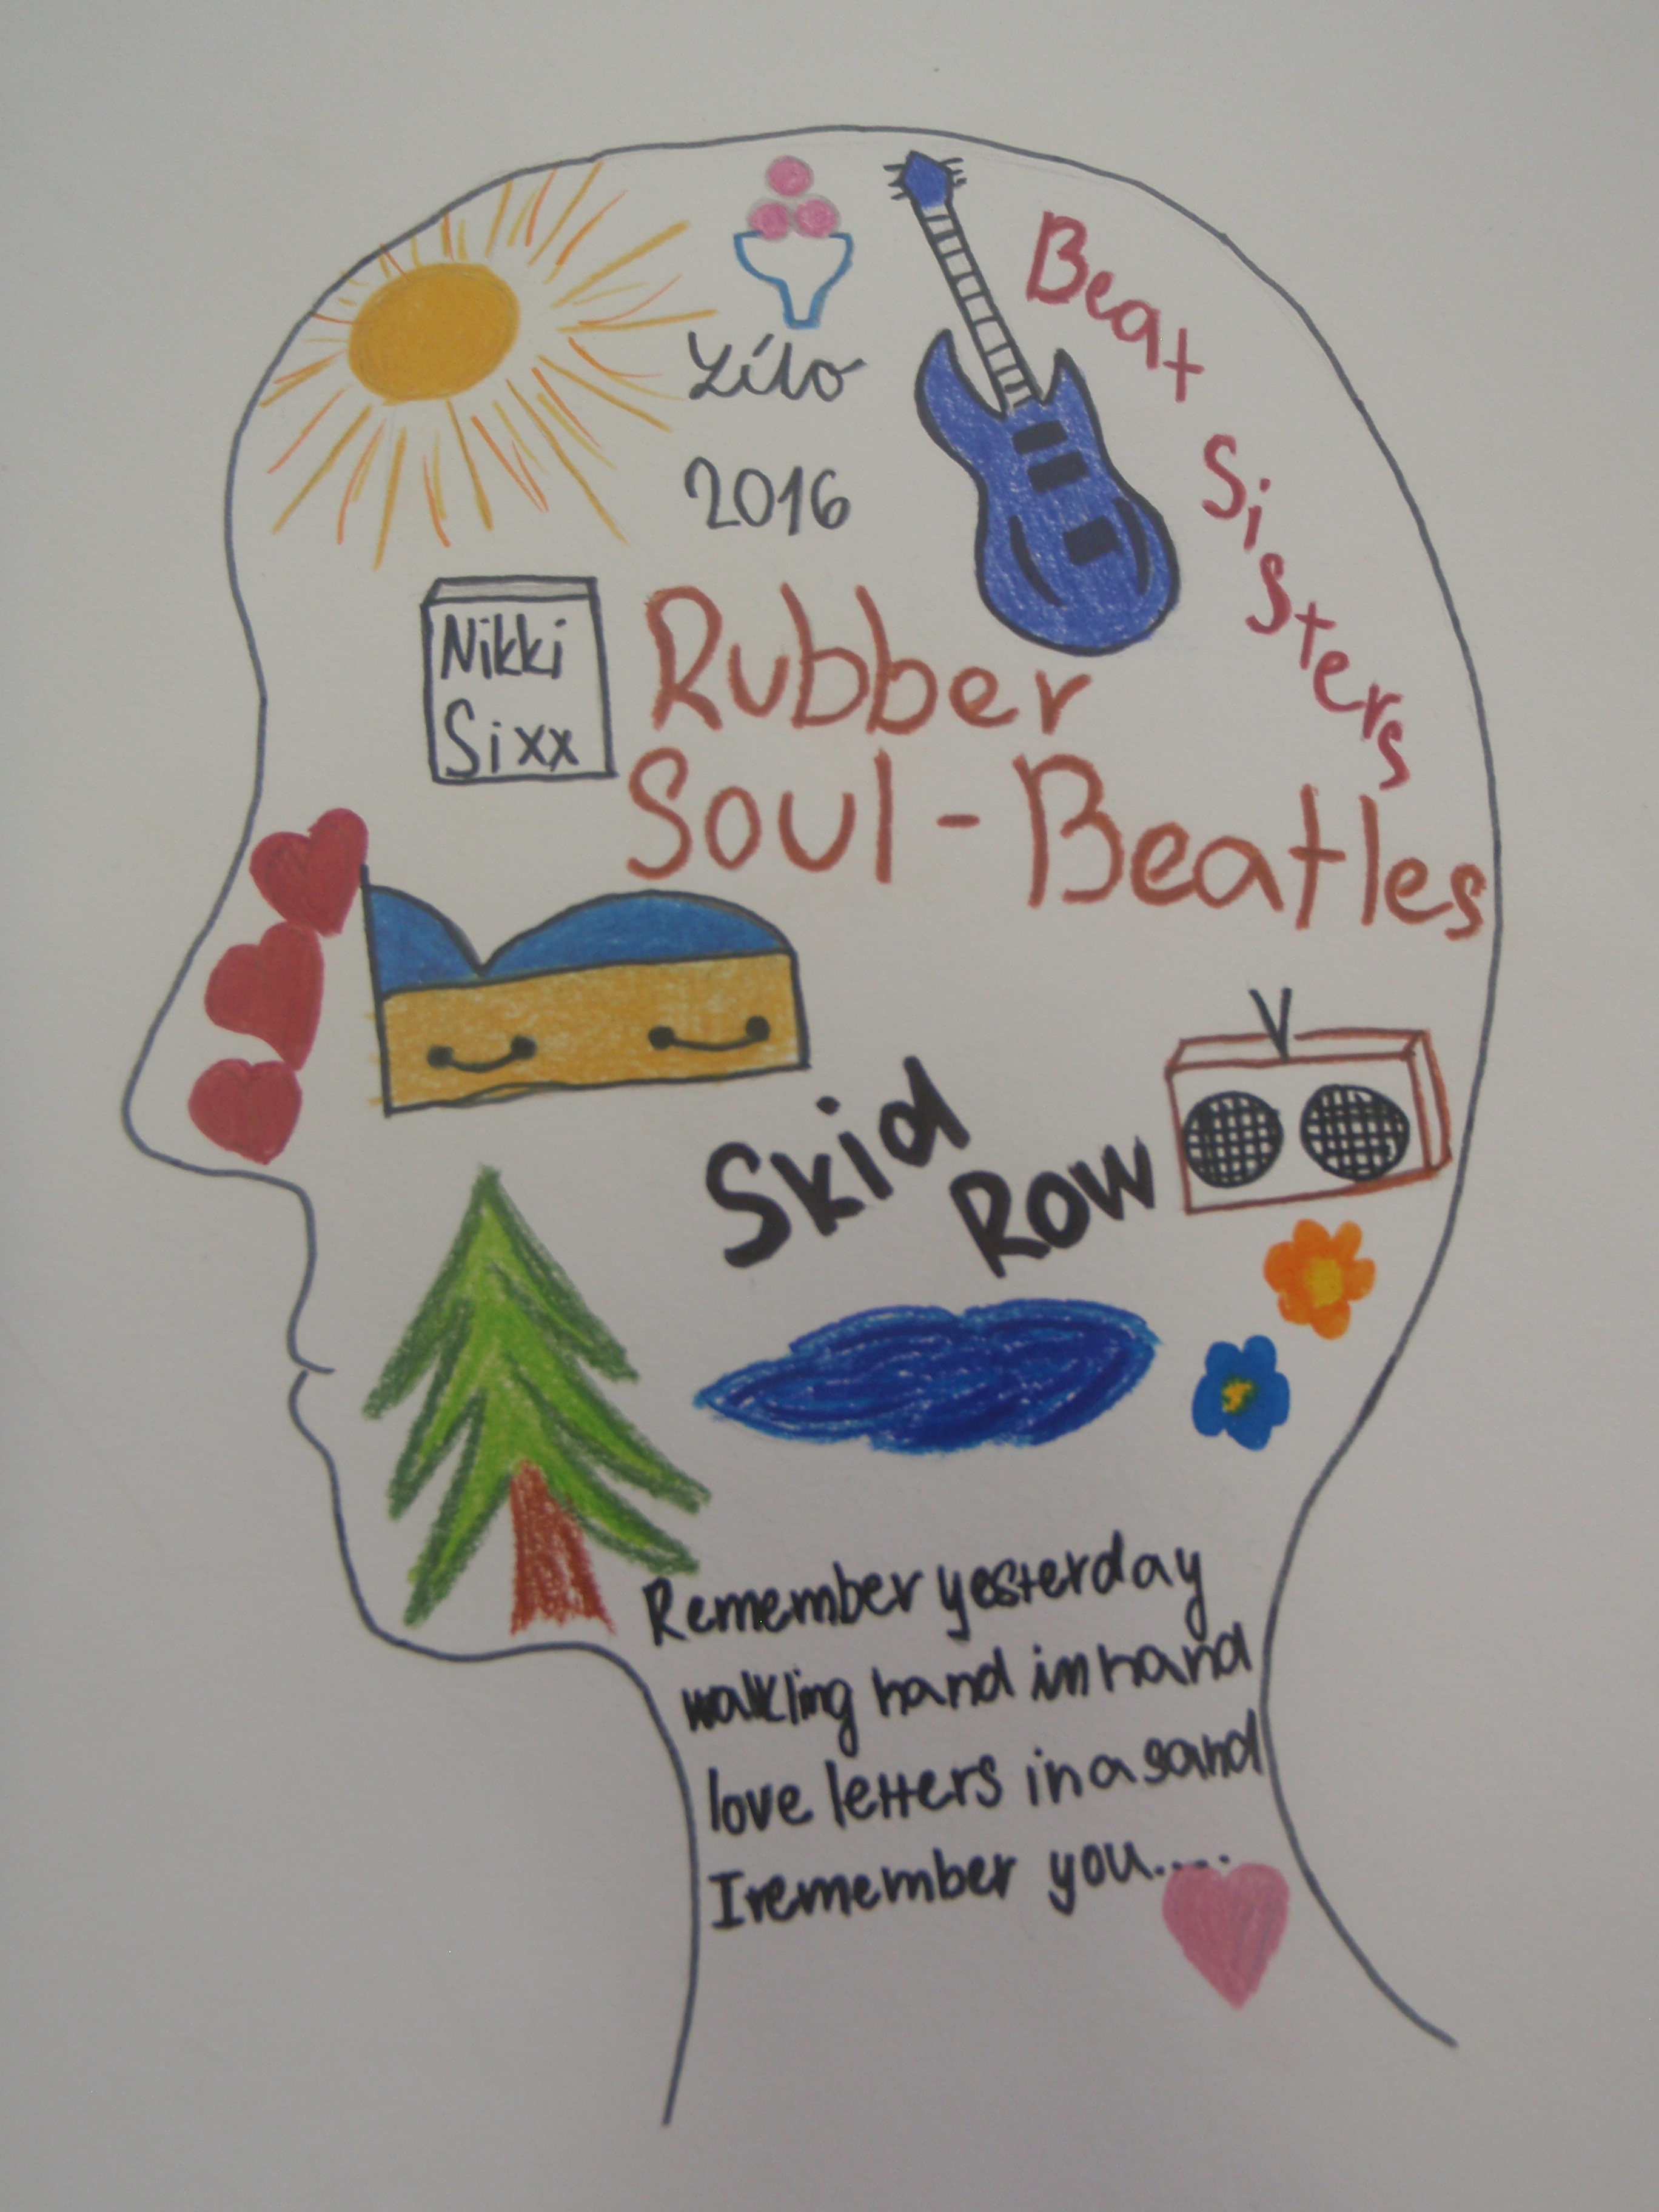 Léto
2016
Beat Sisters
Nikki
Sixx
Rubber
Soul - Beatles
Skid
Row
Remember yesterday
walking hand in hand
love letters in a sand
I remember you.....